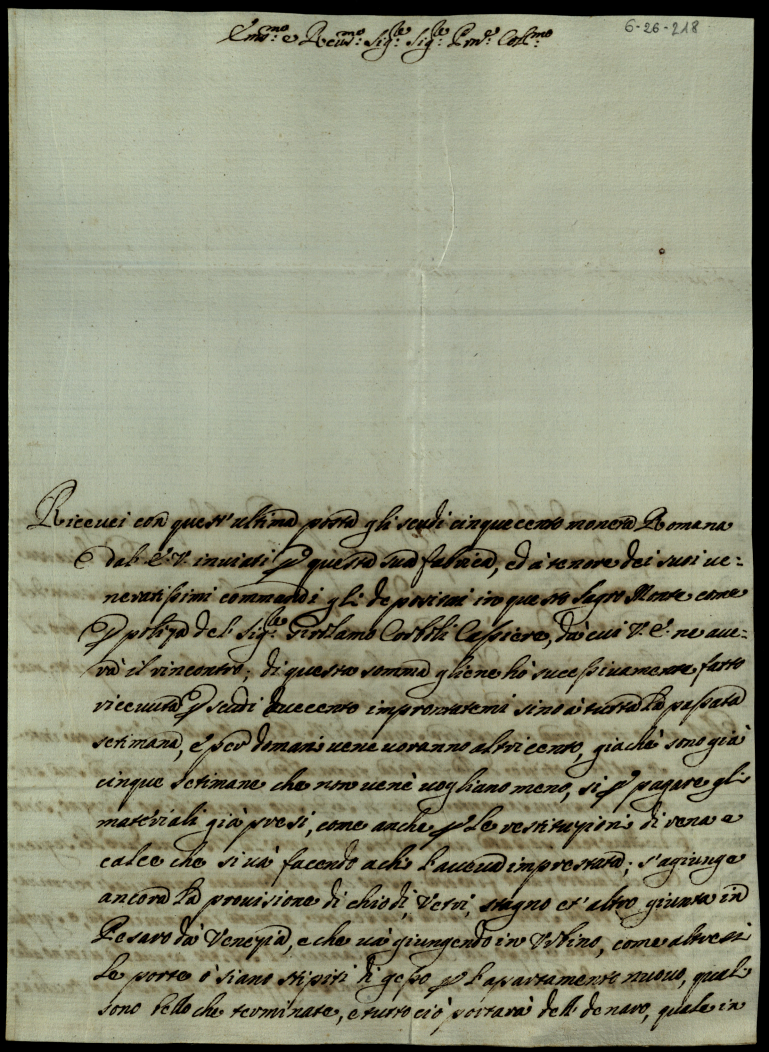 6-26-218
Em.mo e Reu.mo Sig.re Sig.re Pne Col.mo
Riceuei con quest'ultima posta gli scudi cinquecento moneta Romana
dall' E. V. inuiati p questa sua fabrica, ed à tenore dei suoi ue=
neratissimi commandi gli depositai in questo Sagro Monte come
p poliza del Sig.re Girolamo Cortoli Cassiere, da cui V. E. ne aue=
rà il rincontro; di questa somma gliene hò successiuamente fatto
riceuuta p scudi duecento improntatemi sino à tutta la passata
setimana, e per domani uene uoranno altri cento, giache sono già
cinque setimane che non uene uogliano meno, si p pagare gli
materiali già presi, come anche p le restituzioni di rena e
calce che si uà facendo a chi l'aueua imprestata; s'agiunge
ancora la prouisione di chiodi, Vetri, stagno et' altro giunta in
Pesaro da Venezia, e che uà giungendo in Vrbino, come altresi
le porte ò siano stipiti di gesso p l'apartamento nuouo, quali
sono bello che terminate, e tutto ciò portarà dell denaro, quale in